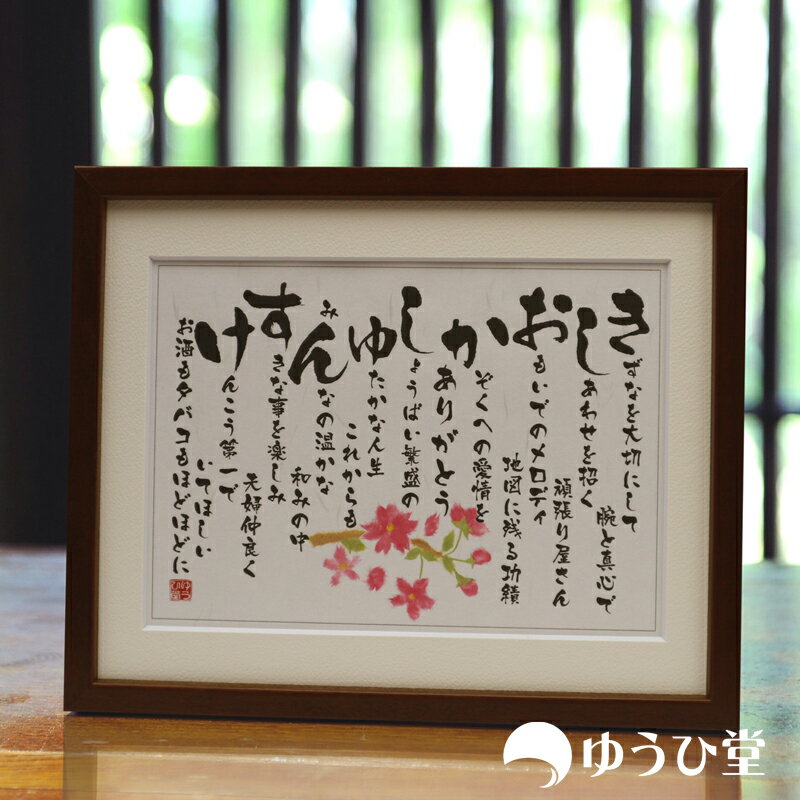 きずなを大切にして
腕と真心で
しあわせを招く
頑張り屋さん
おもいでのメロディ
地図に残る功績
かぞくへの愛情を
ありがとう
しょうばい繁盛の
ゆたかな人生
これからも
みんなの温かな
和みの中
すきな事を楽しみ
夫婦仲良く
けんこう第一で
いてほしい
お酒もタバコもほどほどに
ゆうひ堂
ゆうひ堂